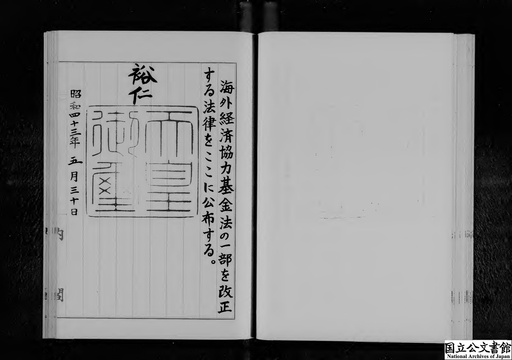 海外経済協力基金法の一部を改正
する法律をここに公布する。
裕仁
天皇
御璽
昭和四十三年五月三十日
内閣
国立公文書館
National Archives of Japan